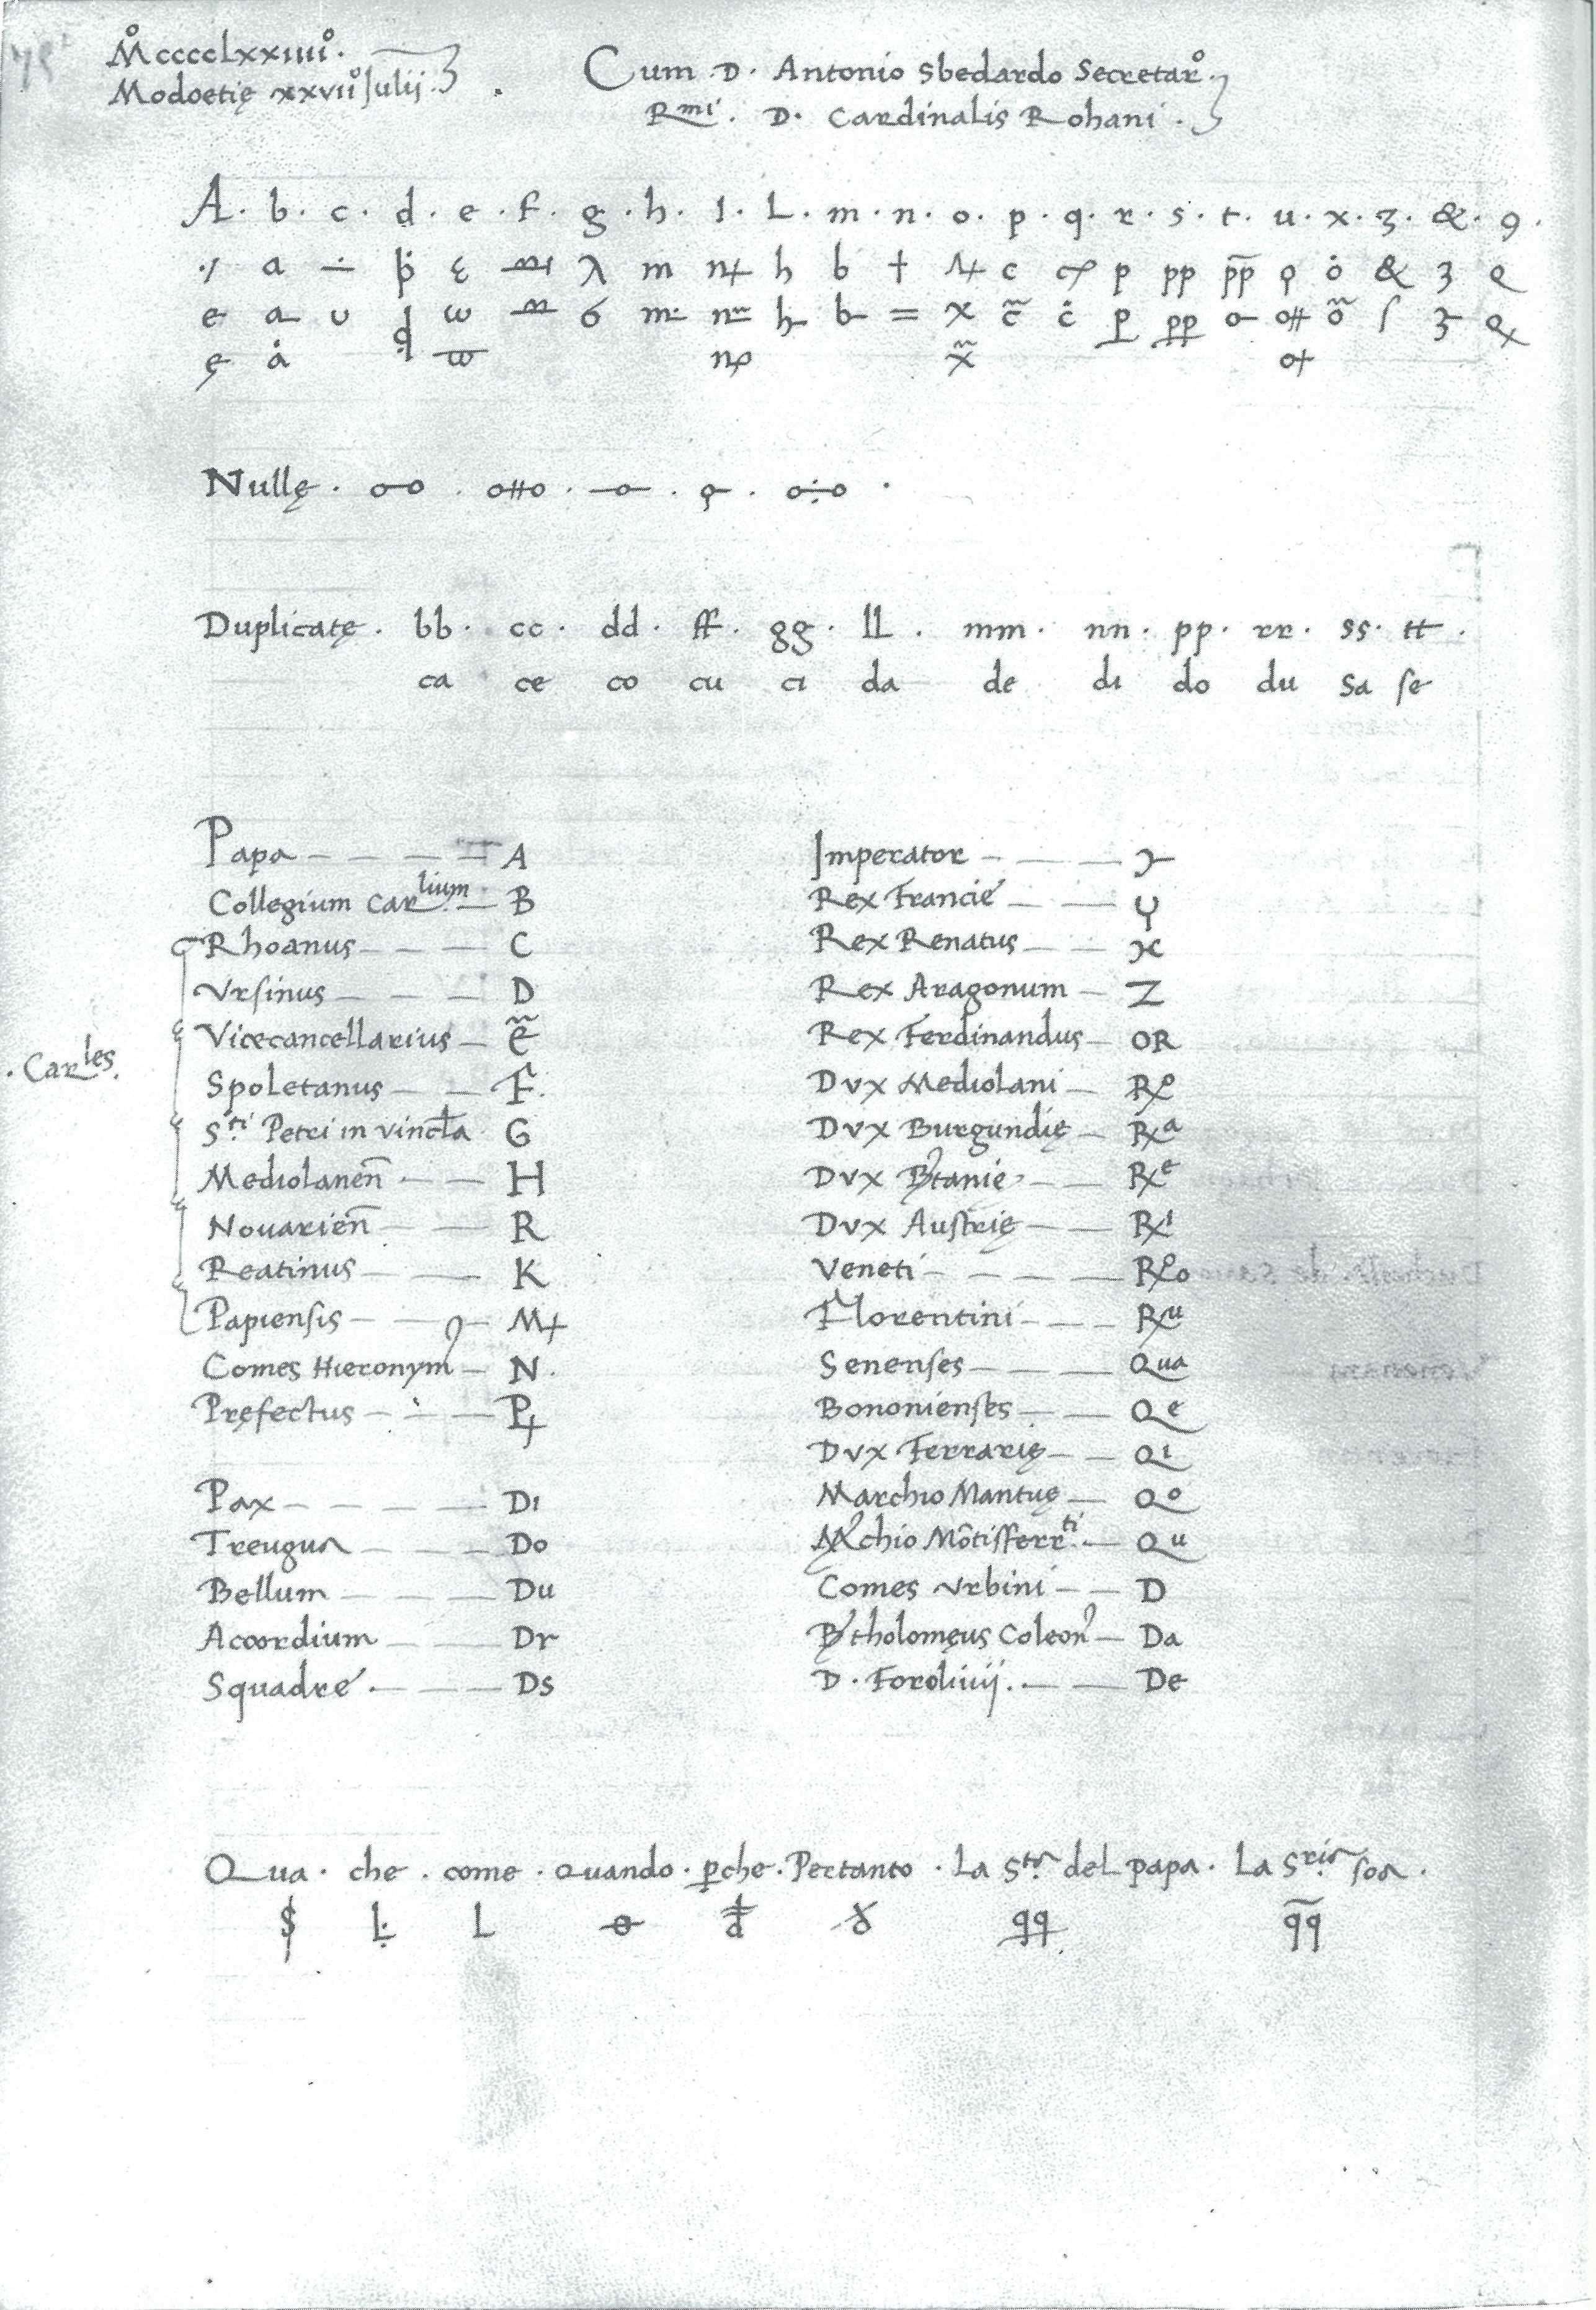 M̊ccccLxxiiii̊.
Modoetię xxvii̊ Julij.
Cum D. Antonio Sbedardo Secretar̊.
Rmi. D. Cardinalis Rohani.
A. b. c. d. e. f. g. h. i. L. m. n. o. p. q. r. s. t. u. x. z. &. 9.
a ÷ ε λ m h b † c p pp p̄p̄ ȯ & 3
e a- u ω 6 m- h b- = x c̃ ċ p pp o- õ ſ 3
ę å x̃
Nullę.
Duplicatę. bb. cc. dd. ff. gg. LL. mm. nn. pp. rr. ss. tt.
ca ce co cu ci da de di do du sa se
Papa — A
Collegium Carlium. — B
.Carles.
Rhoanus — C
Vrsinus — D
Vicecancellarius — ẽ
Spoletanus — F.
Sti. Petri in vincła. G
Mediolaneñ — H
Nouarieñ — R
Reatinus — K
Papiensis — M
Comes Hieronym9 — N.
Pręfectus — P
Pax — Di
Treugua — Do
Bellum — Du
Acordium — Dr
Squadre. — Ds
Imperator —
Rex Francie —
Rex Renatus —
Rex Aragonum — Z
Rex Ferdinandus — OR
Dvx Mediolani — Rx
Dvx Burgundię — Rxa
Dvx Btanie — Rxe
Dvx Austrię — Rxi
Veneti — Rxo
Florentini — Rxu
Senenses — Qua
Bononienses — Qe
Dvx Ferrarię — Qi
Marchio Mantuę — Qo
Mchio Mõtisferrti. — Qu
Comes Vrbini — D
Btholomęus Coleon — Da
D. Foroliuij. — De
Qua. che. come. Quando. ꝑche. Pertanto. La Sta. del papa. La Sria. soa.
$ L L ɵ qq q̄q̄